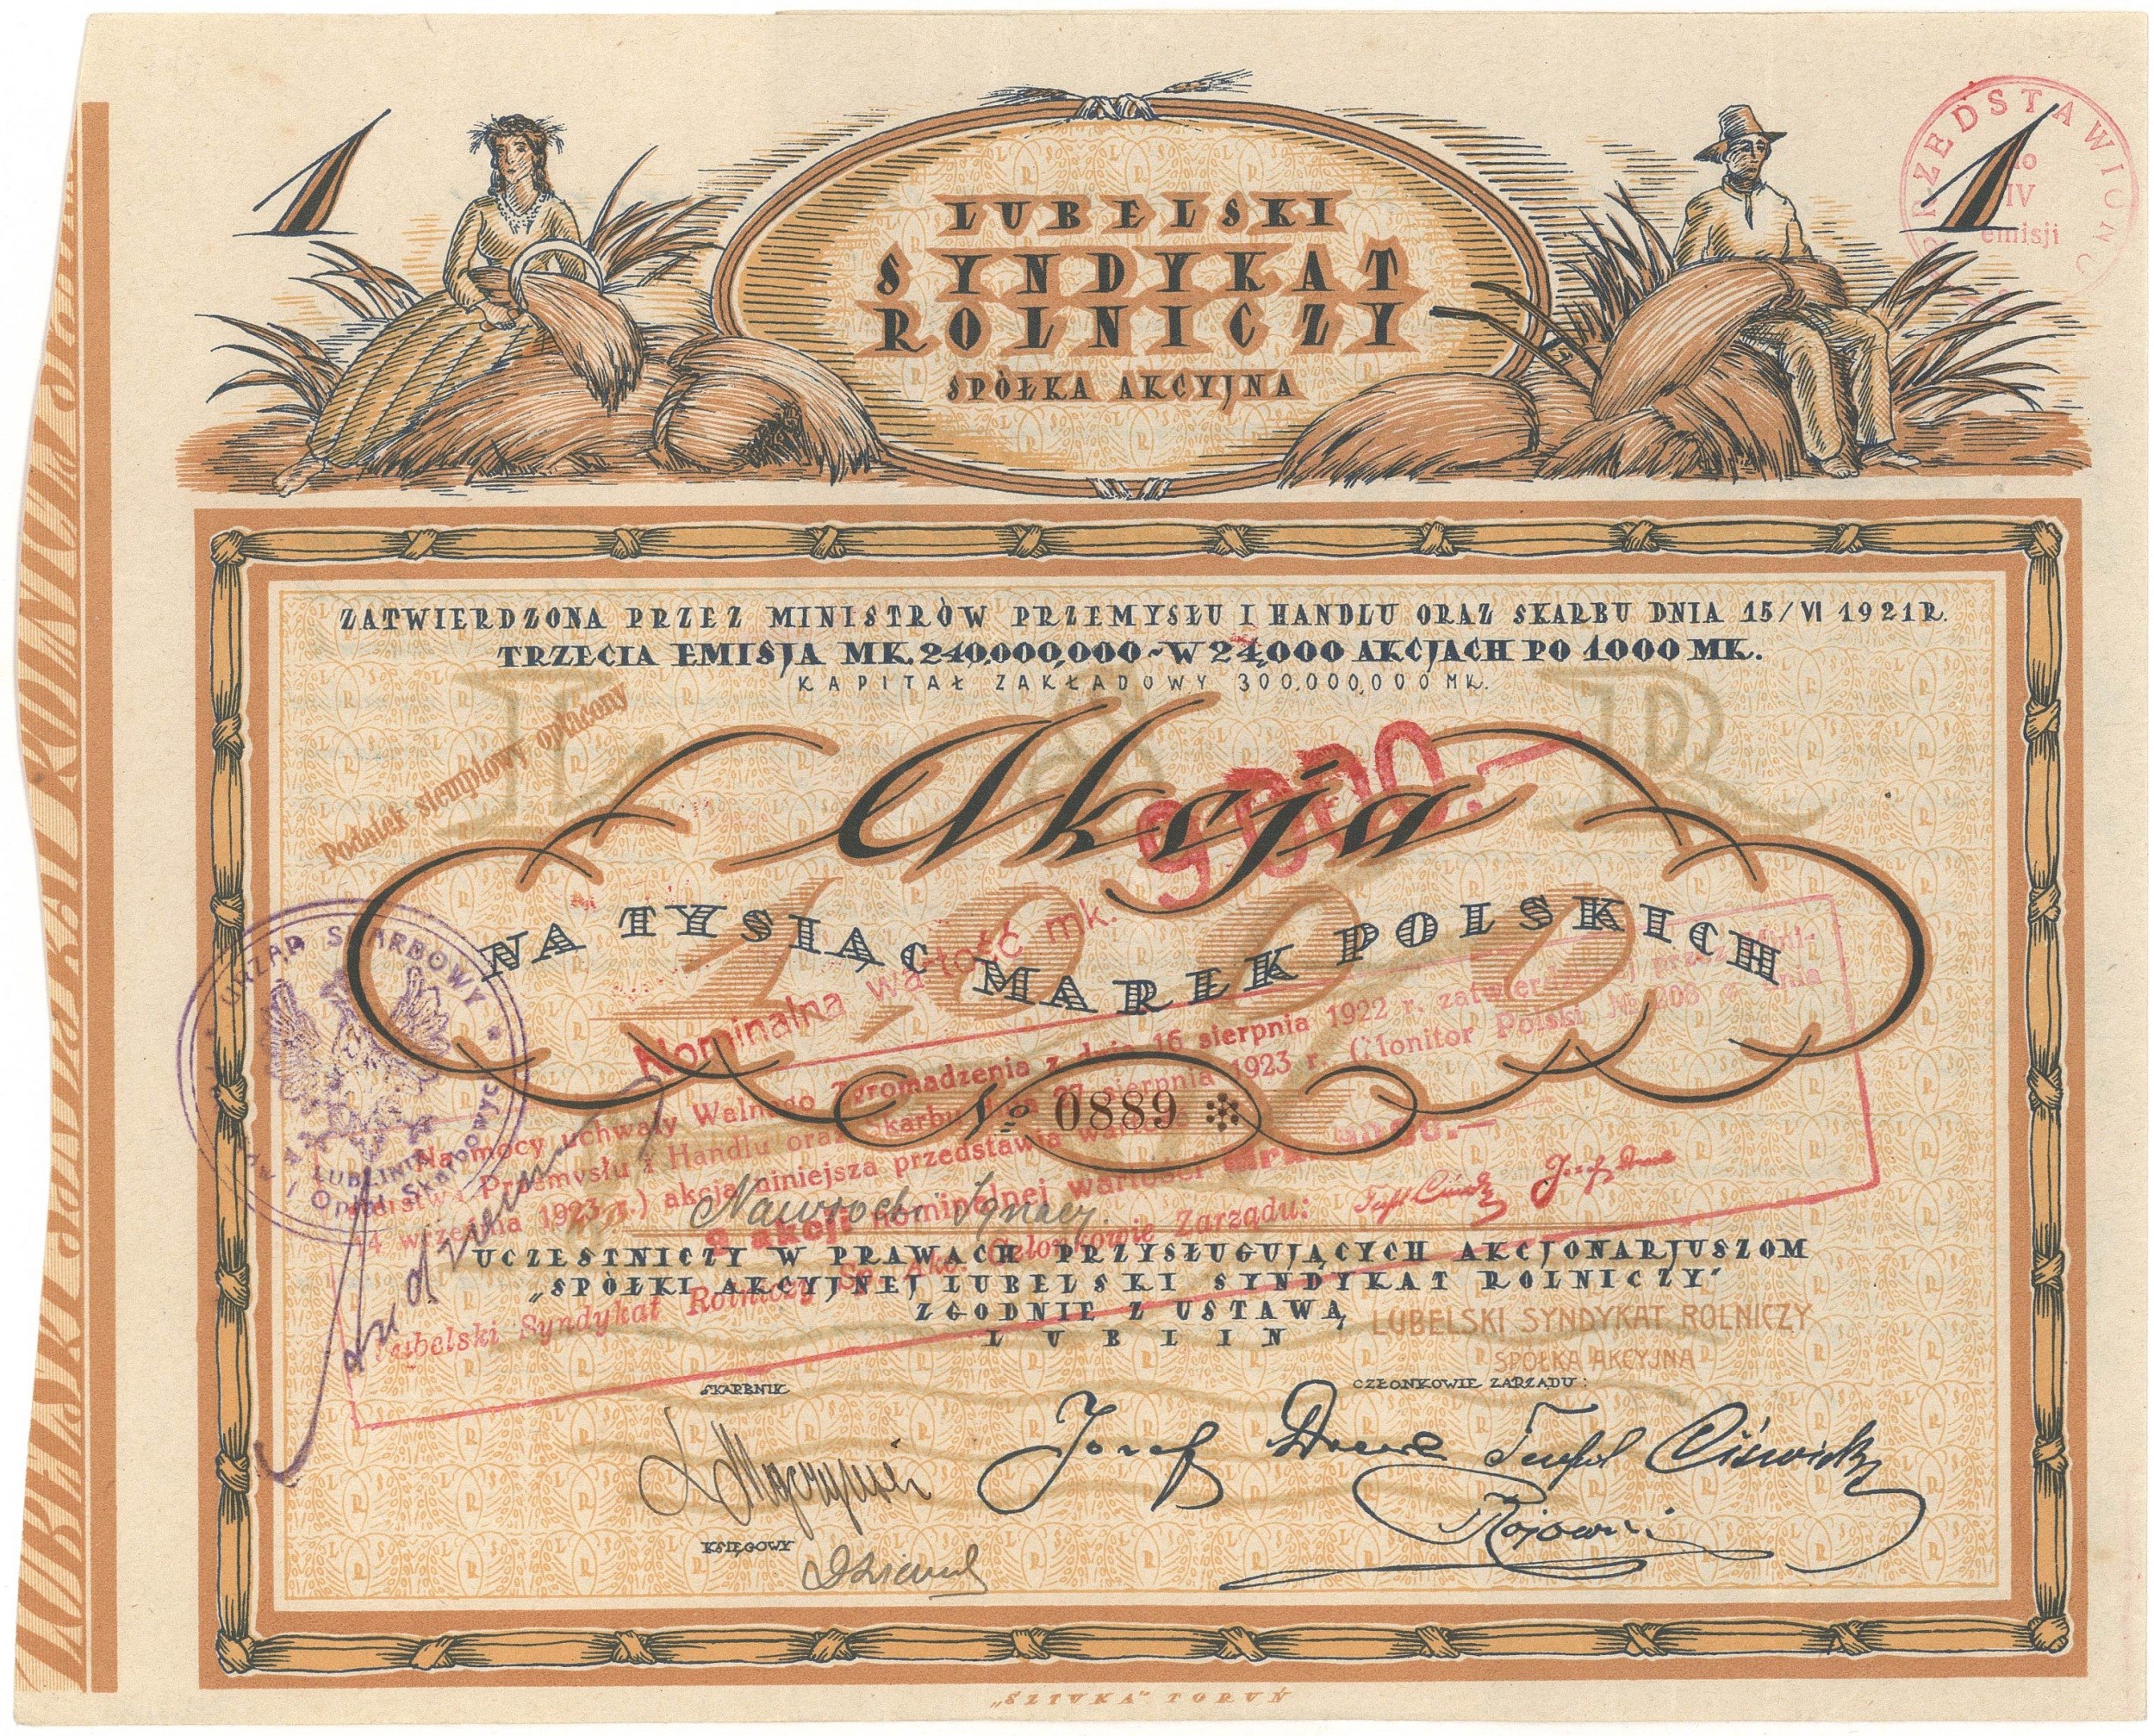 LUBELSKI
SYNDYKAT
ROLNICZY
SPÓŁKA AKCYJNA
PRZEDSTAWIONO
do
IV
emisji
LUBELSKI SYNDYKAT ROLNICZY
ZATWIERDZONA PRZEZ MINISTRÓW PRZEMYSŁU I HANDLU ORAZ SKARBU DNIA 15/VI 1921R.
TRZECIA EMISJA MK. 240.000,000 ~ W 24,000 AKCJACH PO 1000 MK.
KAPITAŁ ZAKŁADOWY 300.000,000 MK.
L S R
Podatek stemplowy opłacony
Akcja
NA TYSIĄC MAREK POLSKICH
1,000
Nominalna wartość mk. 9.000.—
№ 0889
URZĄD SKARBOWY
LUBLINIE
Na mocy uchwały Walnego Zgromadzenia z dnia 16 sierpnia 1922 r. zatwierdzonej przez Mini-
sterstwa Przemysłu i Handlu oraz Skarbu dnia 27 sierpnia 1923 r. (Monitor Polski № 208 z dnia
14 września 1923 r.) akcja niniejsza przedstawia wartość
akcji nominalnej wartości
Lubelski Syndykat Rolniczy Sp. Akc. Członkowie Zarządu:
Nawrocki Ignacy
UCZESTNICZY W PRAWACH PRZYSŁUGUJĄCYCH AKCJONARJUSZOM
„SPÓŁKI AKCYJNEJ LUBELSKI SYNDYKAT ROLNICZY"
ZGODNIE Z USTAWĄ
LUBLIN
LUBELSKI SYNDYKAT ROLNICZY
SPÓŁKA AKCYJNA
SKARBNIK
CZŁONKOWIE ZARZĄDU:
Józef
KSIĘGOWY
„SZTUKA" TORUŃ